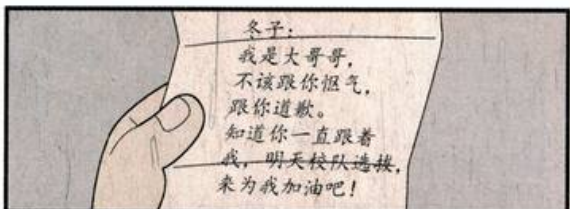 冬子:
我是大哥哥,
不该跟你怄气,
跟你道歉。
知道你一直跟着
我，明天校队选拔,
来为我加油吧!